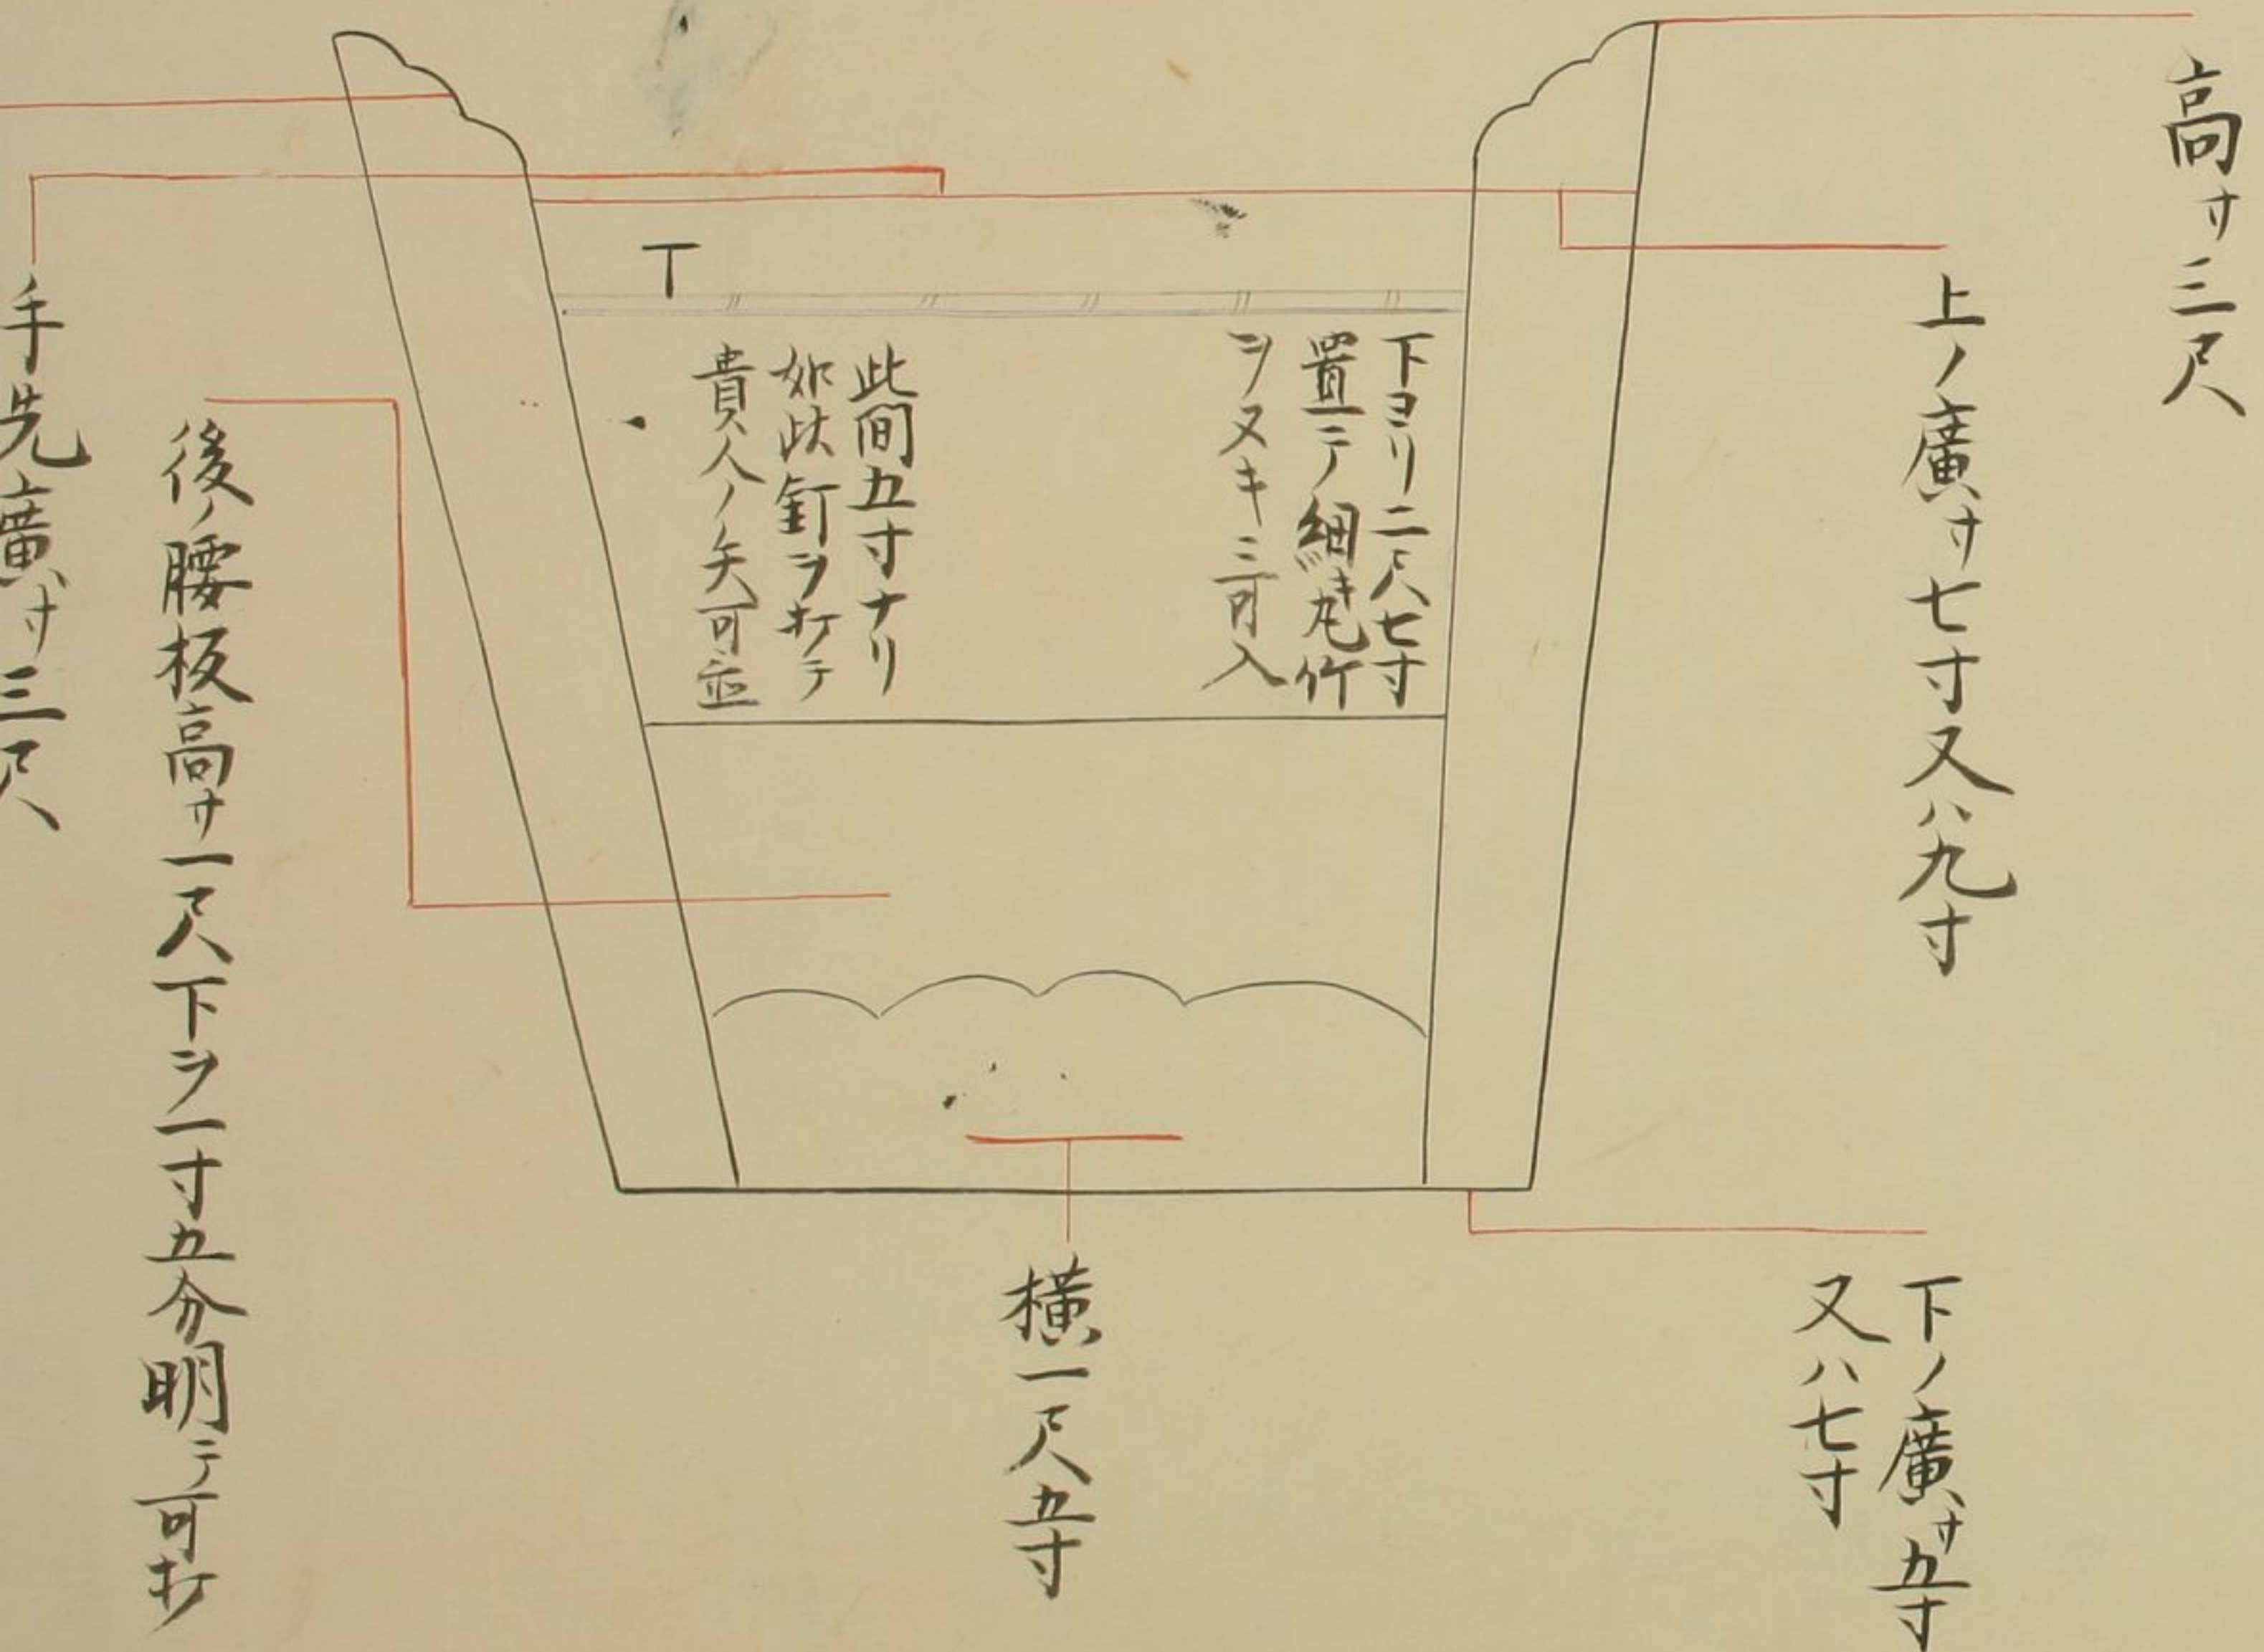 高サ三尺
上ノ廣サ七寸又ハ九寸
下ノ廣サ五寸
又ハ七寸
下ヨリ二尺七寸
置テ細キ丸竹
ヲヌキニ可入
此間五寸ナリ
如此釘ヲ打テ
貴人ノ矢可並
横一尺五寸
後ノ腰板高サ一尺下ヲ一寸五分明テ可打
手先廣サ三尺